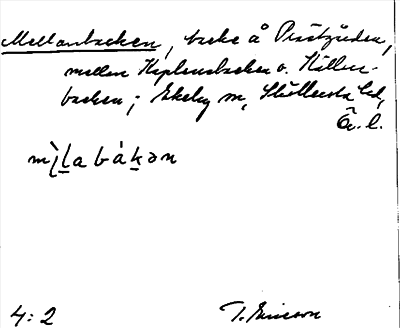 Mellanbacken, backe å Prästgården,
mellan Kaplansbacken o. Källar-
backen; Ekeby sn, Sköllersta hd,
Ör. l.
4:2 T. Ericsson